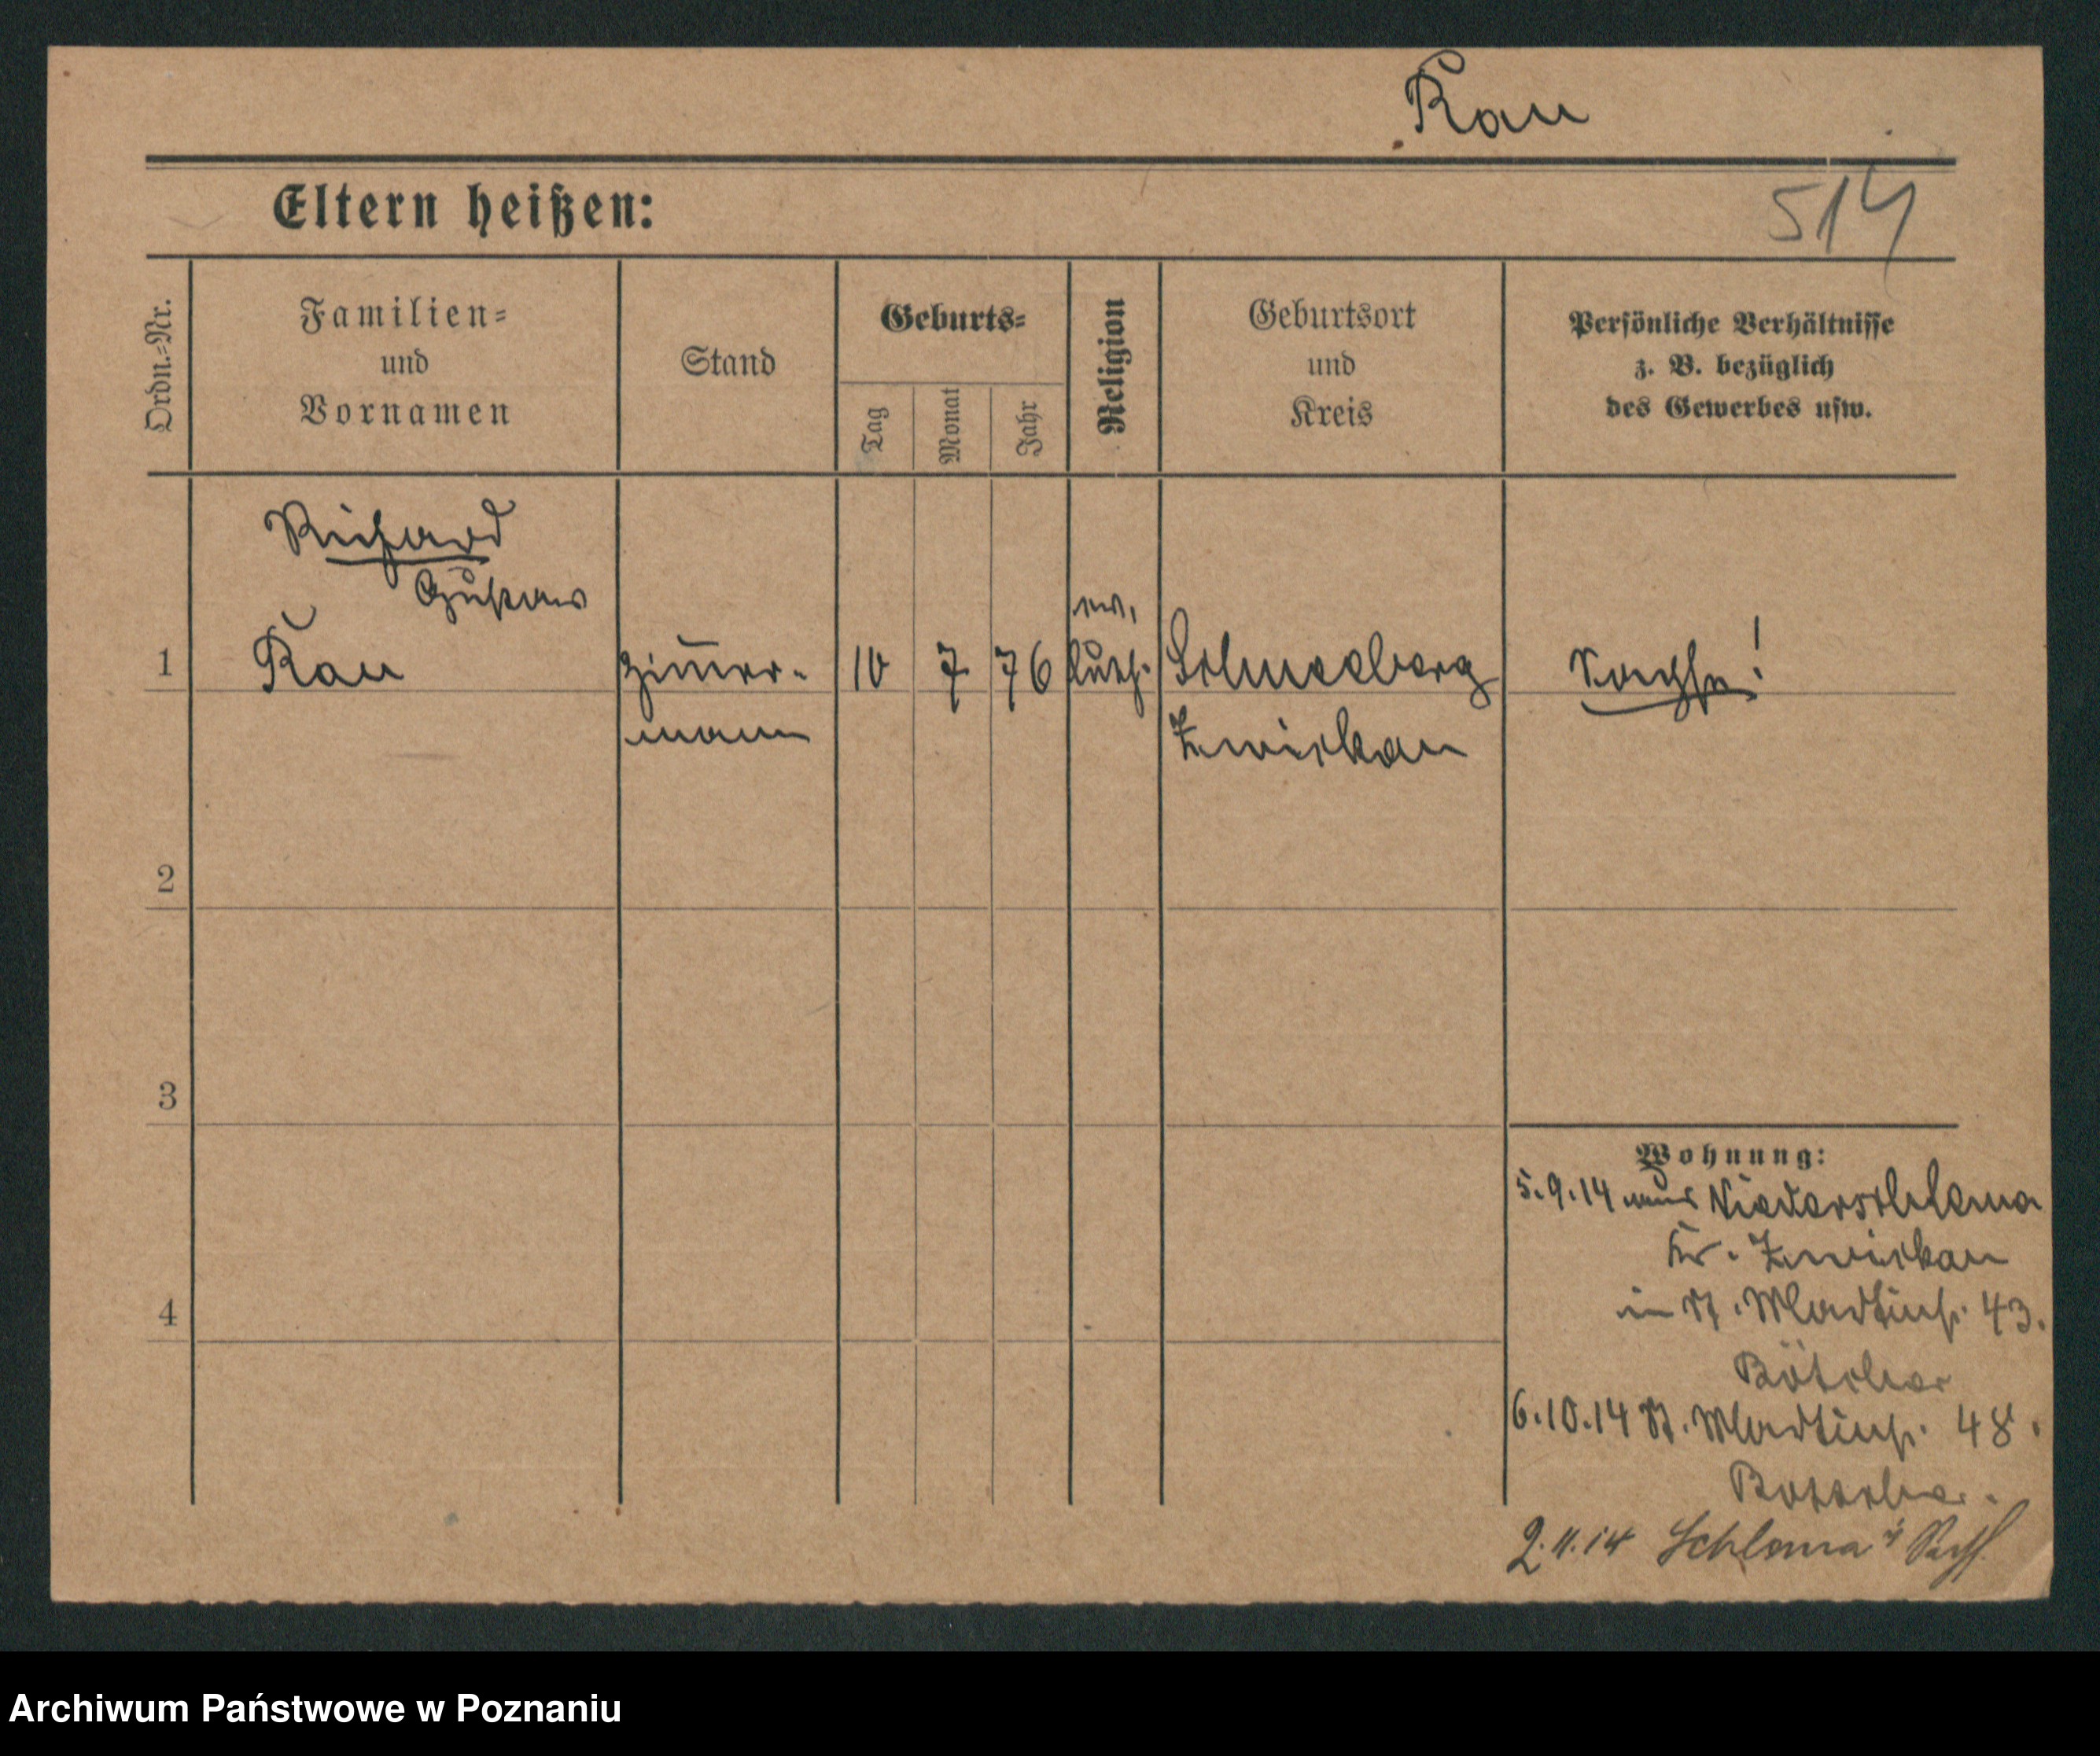 Rau
Eltern heißen:
514
Ordn.-Nr.
Familien-
und
Vornamen
Stand
Geburts-
Tag
Monat
Jahr
Religion
Geburtsort
und
Kreis
Persönliche Verhältnisse
z. B. bezüglich
des Gewerbes usw.
Richard
Gustav
1 Rau Zim̅er- 10 7 76 ev. luth. Schneeberg Sachse!
mann Zwickau
2
3
4
Wohnung:
5.9.14 aus Niederschlema
Kr. Zwickau
in St. Martinstr. 43.
Bötcher
6.10.14 St. Martinstr. 48.
2.11.14 Schlema i/ Sachs.
Archiwum Państwowe w Poznaniu